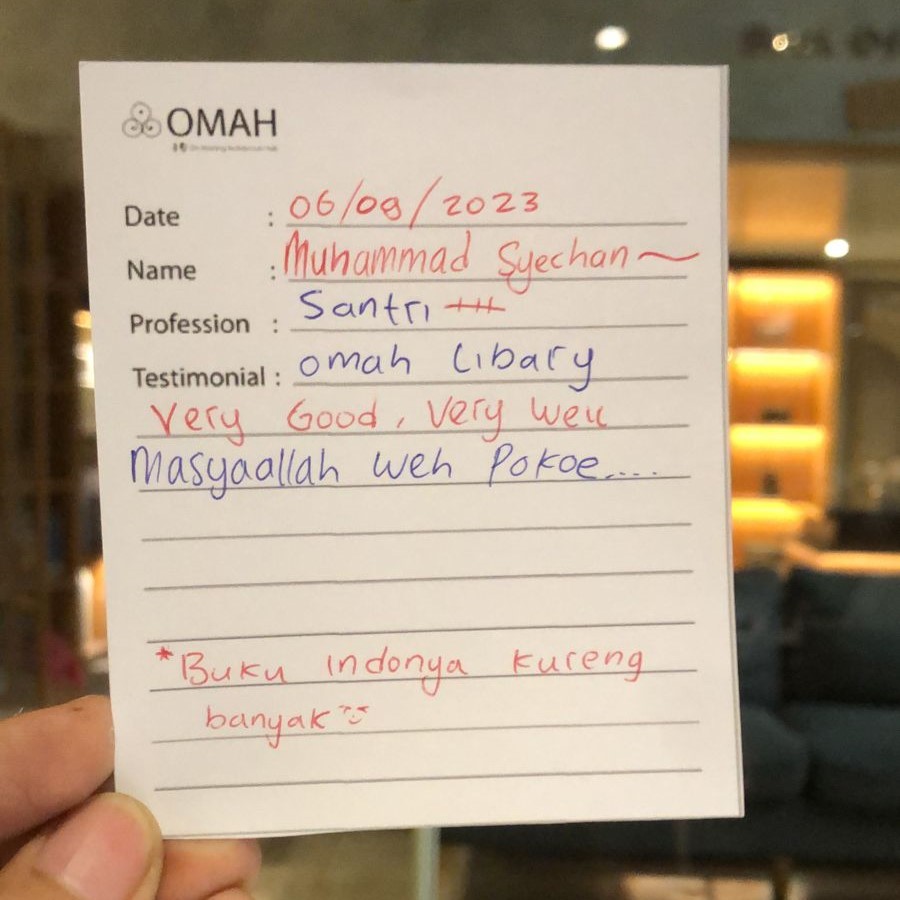 OMAH
Date : 06/08/2023
Name : Muhammad Syechan
Profession : Santri
Testimonial : omah Libary
Very Good, Very Well
Masyaallah weh Pokoe.....
*Buku indonya kureng
banyak